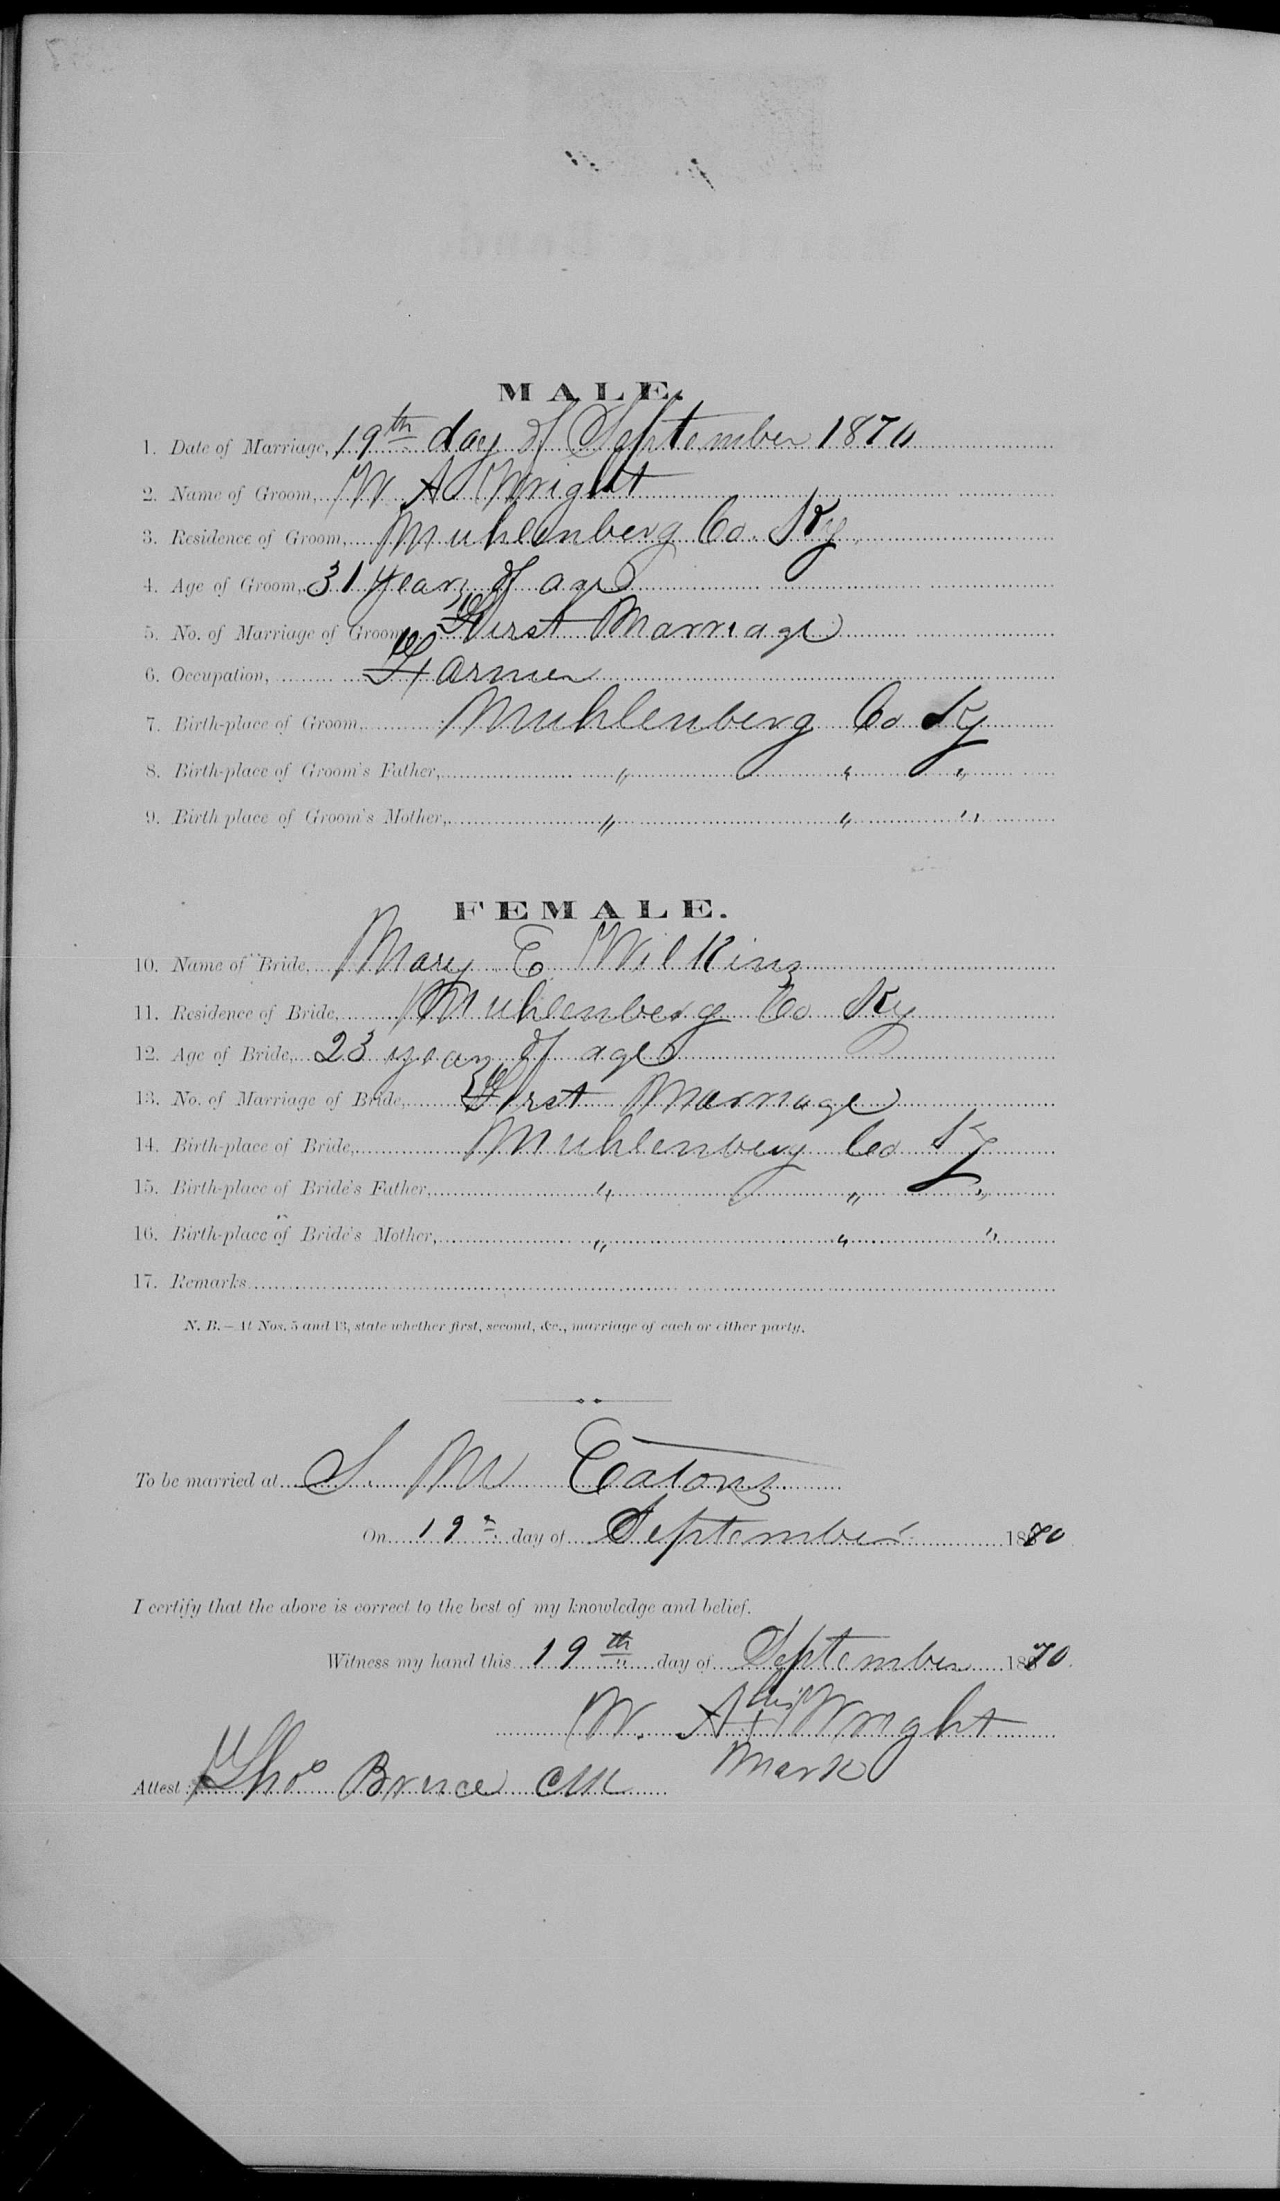 MALE.
1. Date of Marriage, 19th day of September 1870
2. Name of Groom, W. A. Wright
3. Residence of Groom, Muhlenberg Co. Ky
4. Age of Groom, 31 years of age
5. No. of Marriage of Groom, First Marriage
6. Occupation, Farmer
7. Birth-place of Groom, Muhlenberg Co Ky
8. Birth-place of Groom's Father, " " "
9. Birth place of Groom's Mother, " " "
FEMALE.
10. Name of Bride, Mary E Wilkins
11. Residence of Bride, Muhlenberg Co Ky
12. Age of Bride, 23 years of age
13. No. of Marriage of Bride, First Marriage
14. Birth-place of Bride, Muhlenberg Co Ky
15. Birth-place of Bride's Father, " " "
16. Birth-place of Bride's Mother, " " "
17. Remarks
N. B.—At Nos. 5 and 13, state whether first, second, &c., marriage of each or either party.
To be married at S. M Eatons
On 19th day of September 1870
I certify that the above is correct to the best of my knowledge and belief.
Witness my hand this 19th day of September 1870
his
W. A. + Wright
Mark
Attest: Thos Bruce Clk